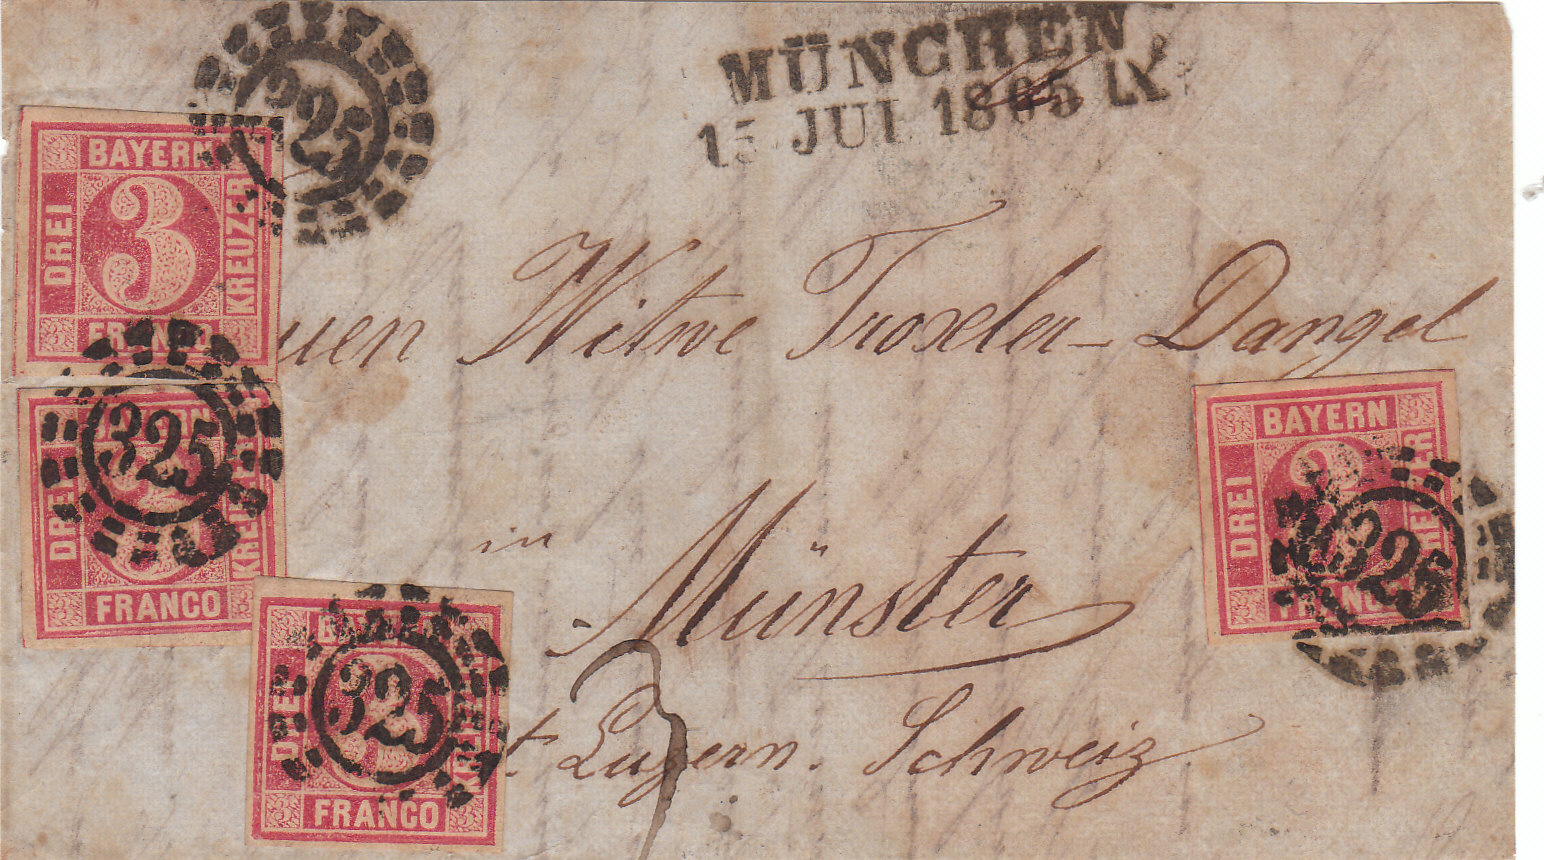 MÜNCHEN
15 JUL 1865 IX
325
BAYERN
DREI 3 KREUZER
FRANCO
uen Witwe Troxler-Dangel
325
BAYERN
DREI KREUZER
FRANCO
BAYERN
DREI 3 KREUZER
325
FRANCO
in
Münster
325
BAYERN
DREI KREUZER
FRANCO
t. Luzern. Schweiz